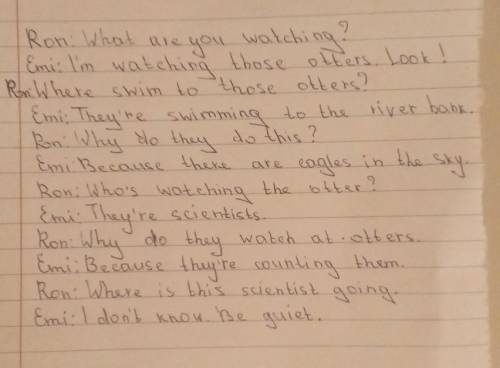 Ron: What are you watching?
Emi: I'm watching those otters. Look!
Ron: Where swim to those otters?
Emi: They're swimming to the river bank.
Ron: Why do they do this?
Emi: Because there are eagles in the sky.
Ron: Who's watching the otter?
Emi: They're scientists.
Ron: Why do they watch at otters.
Emi: Because they're counting them.
Ron: Where is this scientist going.
Emi: I don't know. Be quiet.